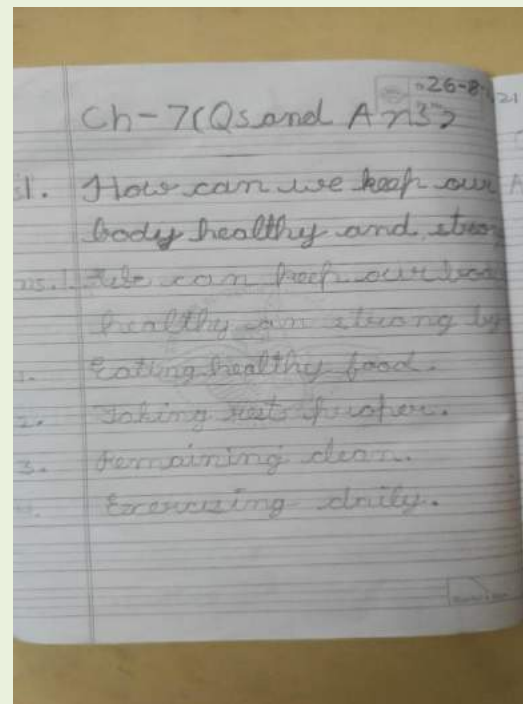 26-8-21
Ch-7(Qs and Ans)
1. How can we keep our
body healthy and strong
ns.1. We can keep our bod
healthy an strong by
1. Eating healthy food.
2. Taking rest proper.
3. Remaining clean.
4. Exercising daily.